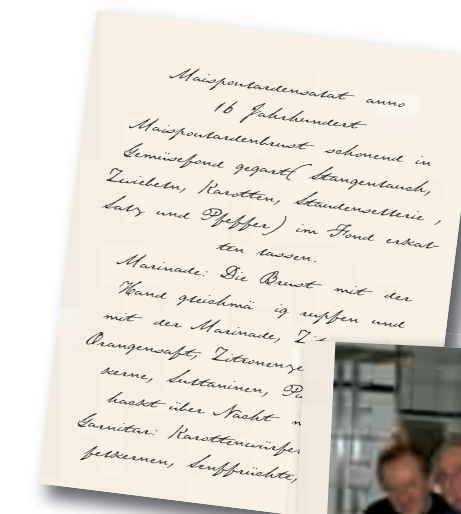 Maispoulardensalat anno
16 Jahrhundert
Maispoulardenbrust schonend in
Gemüsefond gegart( Stangenlauch,
Zwiebeln, Karotten, Staudensellerie ,
Salz und Pfeffer) im Fond erkal-
ten lassen.
Marinade: Die Brust mit der
Hand gleichmä ig rupfen und
mit der Marinade,
Orangensaft, Zitronenze
kerne, Sultaninen, Pa
hackt über Nacht m
Garnitur: Karottenwürfe
felkernen, Senffrüchte,